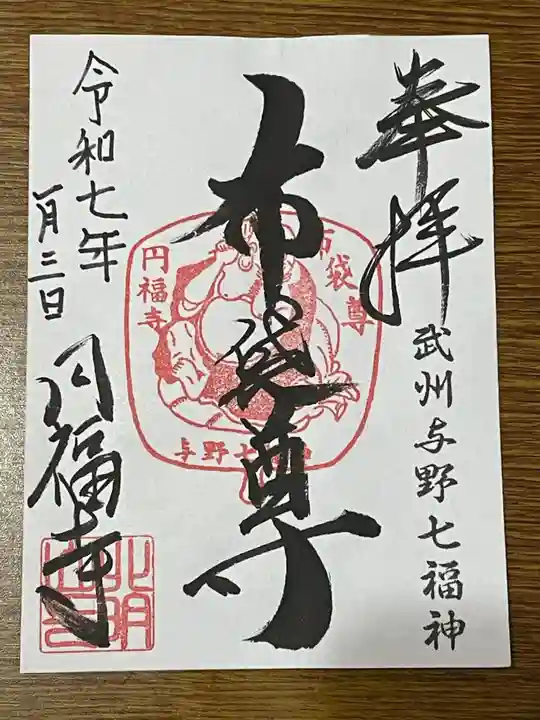 奉拝
武州与野七福神
布袋尊
布袋尊
円福寺
与野七福神
令和七年
一月三日
円福寺